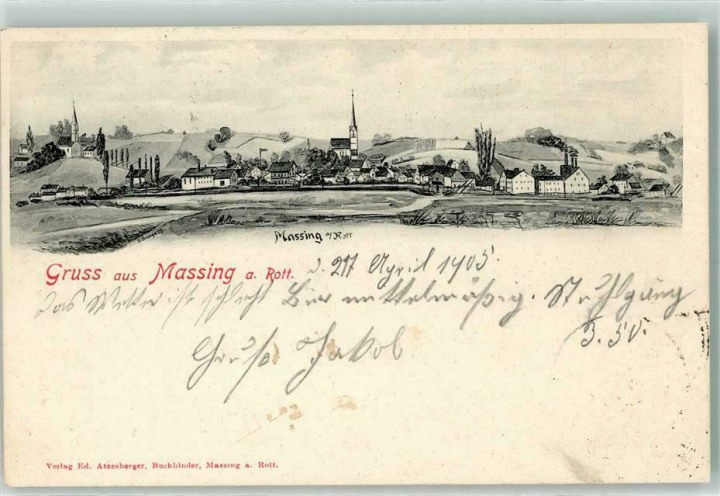 Massing a/Rott
Gruss aus Massing a. Rott. d. 27 April 1905
Das Wetter ist schlecht Bier mittelmäßig. Stuhlgang
3.50.
Gruß Jakob
Verlag Ed. Atzesberger, Buchbinder, Massing a. Rott.